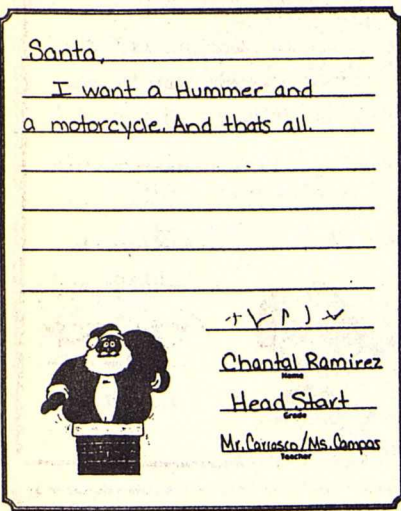 Santa,
I want a Hummer and
a motorcycle. And thats all.
Chantal Ramirez
Name
Head Start
Grade
Mr. Carrasco/Ms. Campos
Teacher